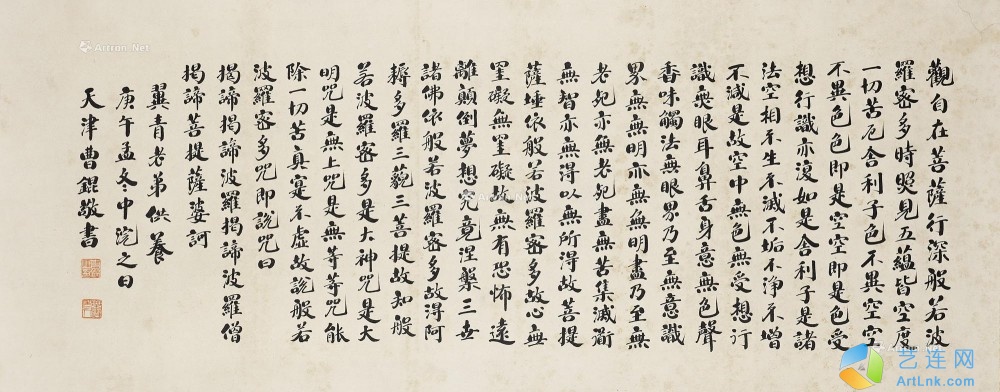 觀自在菩薩行深般若波
羅密多時照見五蘊皆空度
一切苦厄舍利子色不異空空
不異色色即是空空即是色受
想行識亦復如是舍利子是諸
法空相不生不滅不垢不淨不增
不減是故空中無色無受想行
識無眼耳鼻舌身意無色聲
香味觸法無眼界乃至無意識
界無無明亦無無明盡乃至無
老死亦無老死盡無苦集滅道
無智亦無得以無所得故菩提
薩埵依般若波羅密多故心無
罣礙無罣礙故無有恐怖遠
離顛倒夢想究竟涅槃三世
諸佛依般若波羅密多故得阿
耨多羅三藐三菩提故知般
若波羅密多是大神咒是大
明咒是無上咒是無等等咒能
除一切苦真實不虛故說般若
波羅密多咒即說咒曰
揭諦揭諦波羅揭諦波羅僧
揭諦菩提薩婆訶
翼青老弟供養
庚午孟冬中浣之日
天津曹錕敬書
Artron.Net
艺连网
ArtLnk.com